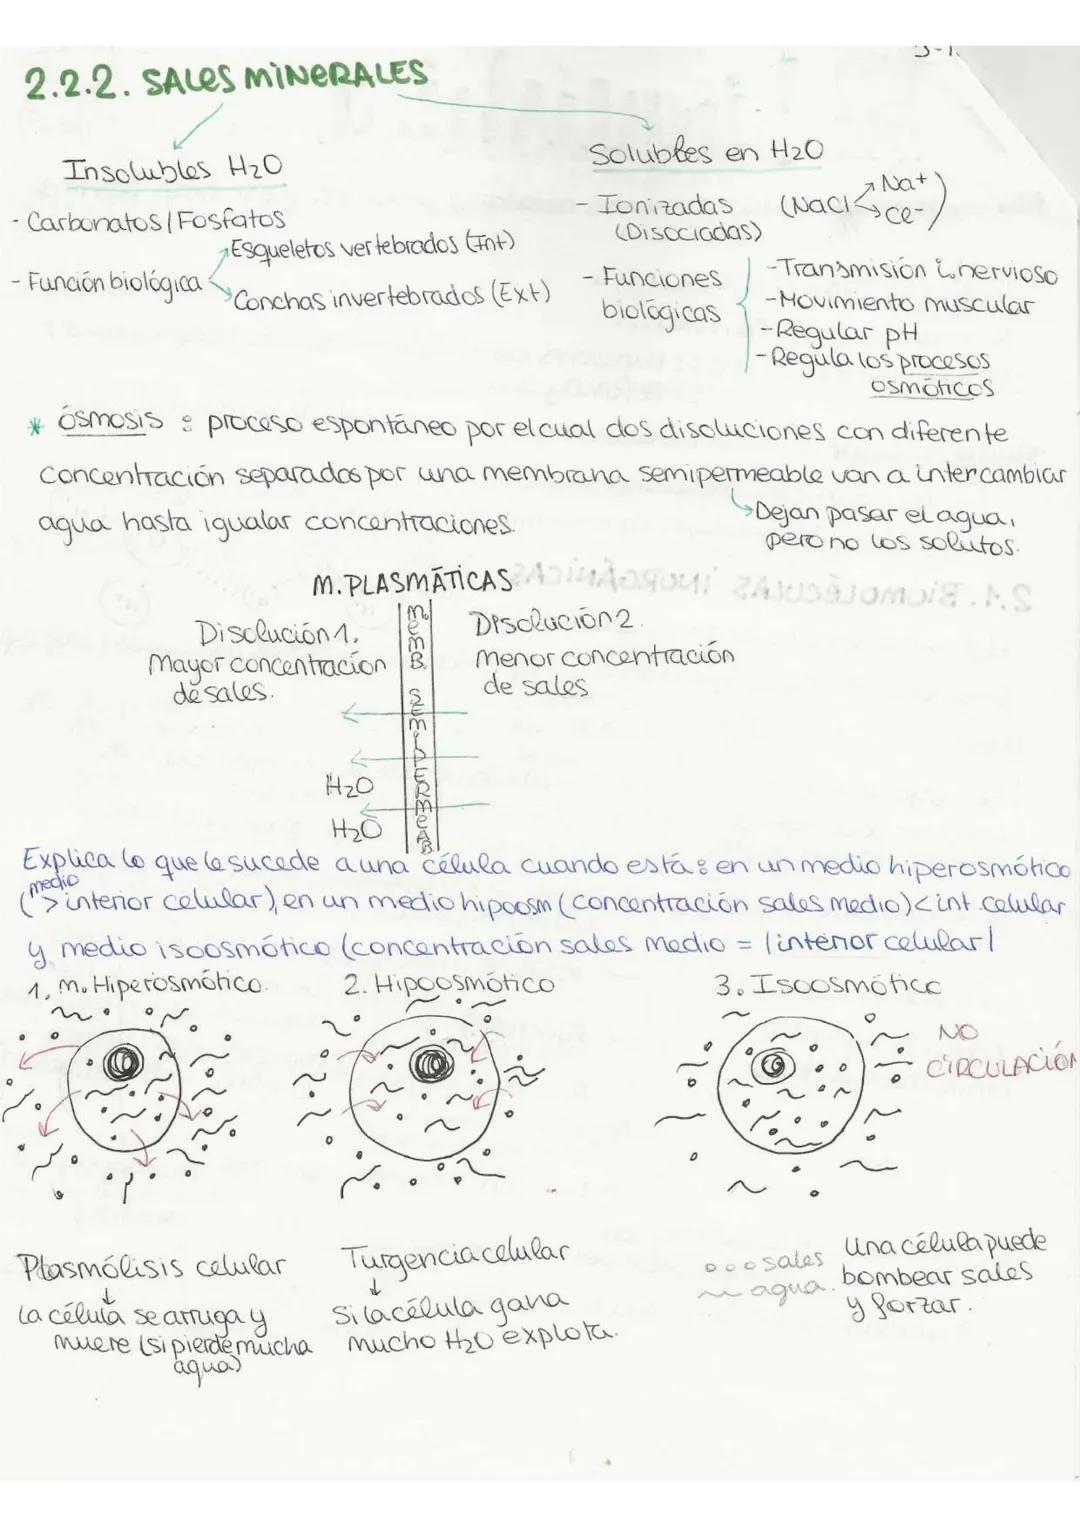 2.2.2. SALES MINERALES
Insolubles H2O
- Carbonatos/Fosfatos
- Función biológica
Esqueletos vertebrados (Int)
Conchas invertebrados (Ext)
Solubles en H2O
- Ionizadas (NaCl Na+ Cl-)
(Disociadas)
- Funciones biológicas
- Transmisión i. nervioso
- Movimiento muscular
- Regular pH
- Regula los procesos
osmóticos
* ósmosis : proceso espontáneo por el cual dos disoluciones con diferente
concentración separados por una membrana semipermeable van a intercambiar
agua hasta igualar concentraciones.
Dejan pasar el agua,
pero no los solutos.
M. PLASMÁTICAS
Disolución 1.
Mayor concentración
de sales.
MEMB. SEMIPERMEAB
Disolución 2.
Menor concentración
de sales
H2O
H2O
Explica lo que le sucede a una célula cuando está: en un medio hiperosmótico
(medio > interior celular), en un medio hipoosm (concentración sales medio) < int celular
y medio isoosmótico (concentración sales medio = |interior celular|
1. M. Hiperosmótico.
2. Hipoosmótico
3. Isoosmótico
NO
CIRCULACIÓN
Plasmólisis celular
La célula se arruga y
muere (si pierde mucha
agua)
Turgencia celular
Si la célula gana
mucho H2O explota.
sales
agua.
Una célula puede
bombear sales
y forzar.